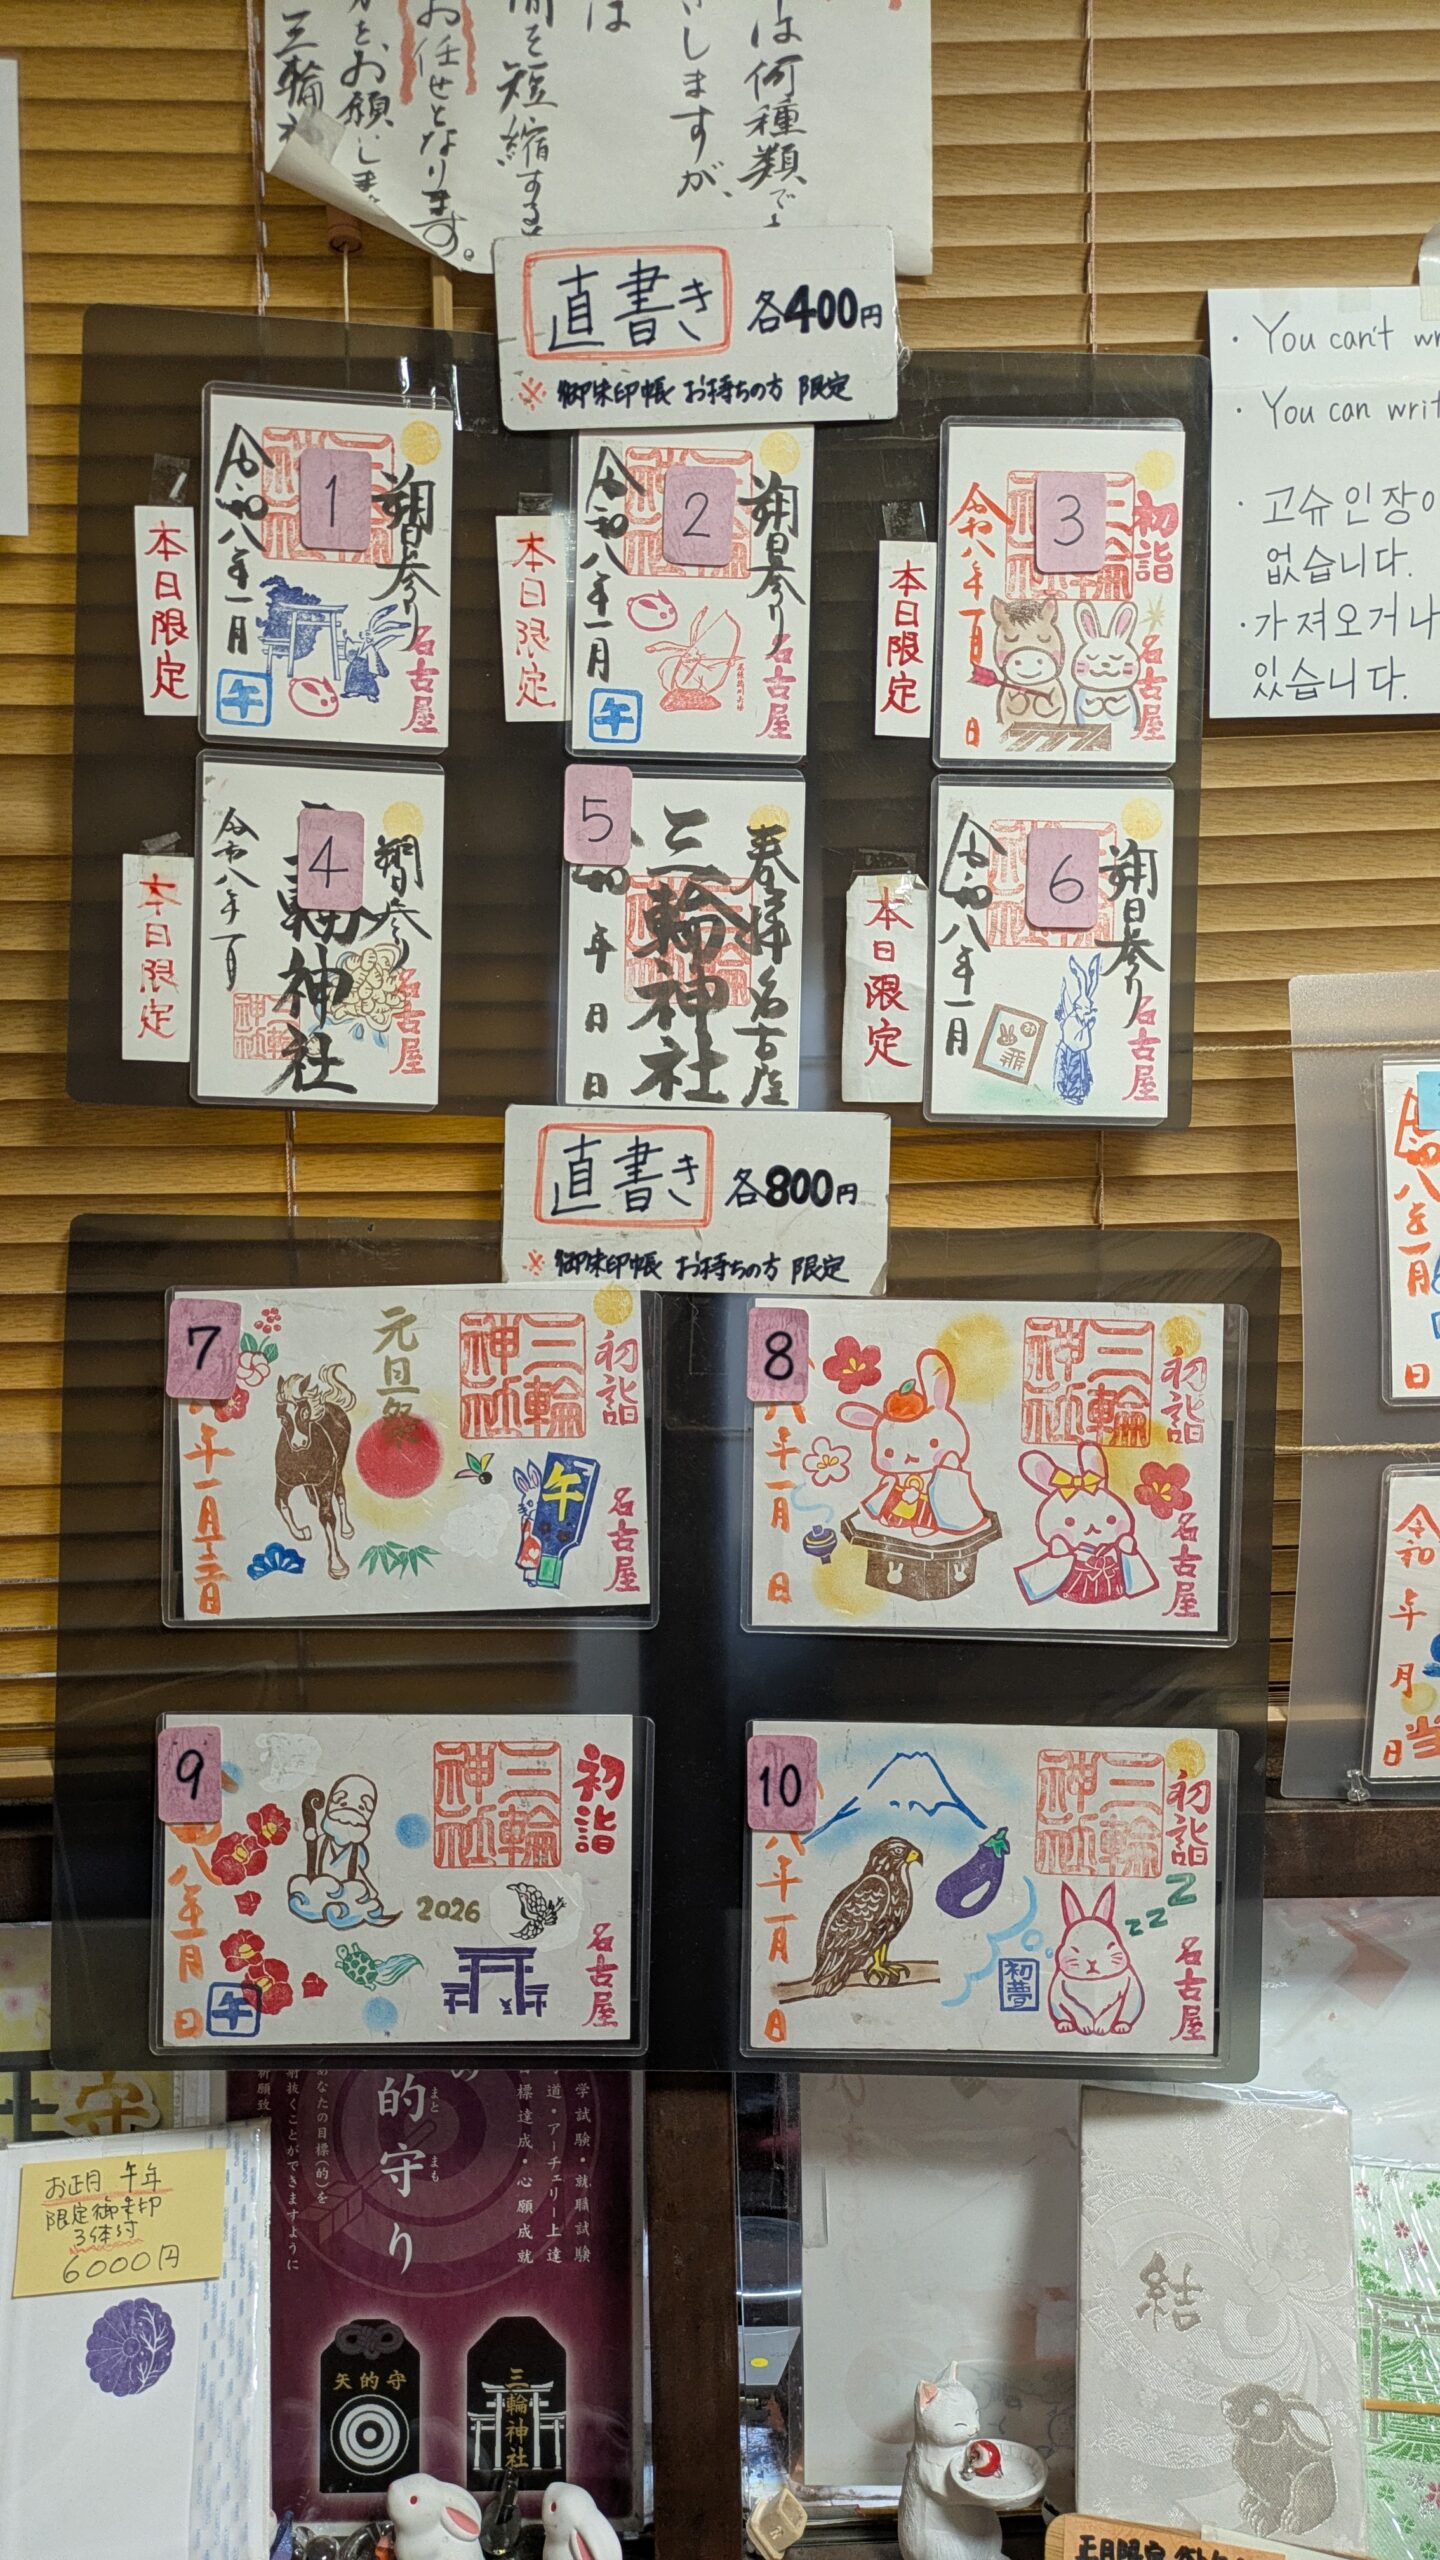 は何種類で
しますが、
は
間を短縮する
お任せとなります。
をお願いしま
三輪
直書き 各400円
※御朱印帳 お持ちの方 限定
You can't wr
You can writ
고슈인장이
없습니다.
가져오거나
있습니다.
本日限定
1
朔日参り
名古屋
令和八年一月
午
本日限定
2
朔日参り
名古屋
令和八年一月
午
本日限定
3
初詣
名古屋
令和八年一月
日
本日限定
4
朔日参り
名古屋
神社
令和八年一月
5
奉拝
名古屋
三輪神社
年
月
日
本日限定
6
朔日参り
名古屋
令和八年一月
直書き 各800円
※御朱印帳 お持ちの方 限定
7
初詣
名古屋
三輪神社
元旦祭
午
年一月
日
8
初詣
名古屋
三輪神社
八年一月
日
9
初詣
名古屋
三輪神社
2026
八年一月
日
午
10
初詣
名古屋
三輪神社
初夢
zzz
八年一月
日
令和
年
月
日
お正月 午年
限定御朱印
3体付
6000円
学試験・就職試験
道・アーチェリー上達
目標達成・心願成就
の
的守り
まと
まも
あなたの目標(的)を
射抜くことができますように
祈願致
矢的守
三輪神社
結
正月限定